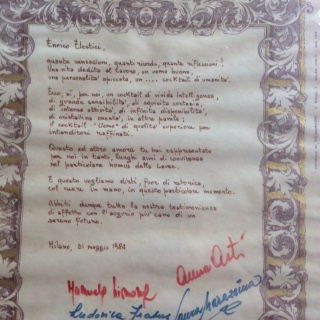 Enrico Elestici,
quante sensazioni, quanti ricordi, quante riflessioni!
Una vita dedita al lavoro, un uomo buono,
una personalità spiccata, un .... cocktail di umanità.
Ecco, sì, per noi, un cocktail di vivida intelligenza,
di grande sensibilità, di squisita cortesia,
di intensa attività, di infinita disponibilità,
di cristallina onestà, in altre parole;
il cocktail "Uomo" di qualità superiore per
intenditori raffinati.
Questo ed altro ancora tu hai rappresentato
per noi in tanti, lunghi anni di convivenza
nel particolare
E questo vogliamo dirti, fuor di retorica,
col cuore in mano, in questo particolare momento.
Abbiti dunque tutta la nostra testimonianza
di affetto con l'augurio più caro di un
sereno futuro.
Milano, 31 maggio 1982
Manuela
Anna
Ludovica